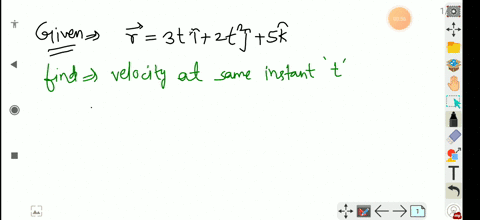 Given⇒ r⃗ = 3t î + 2t² ĵ + 5k̂
find⇒ velocity at same instant 't'